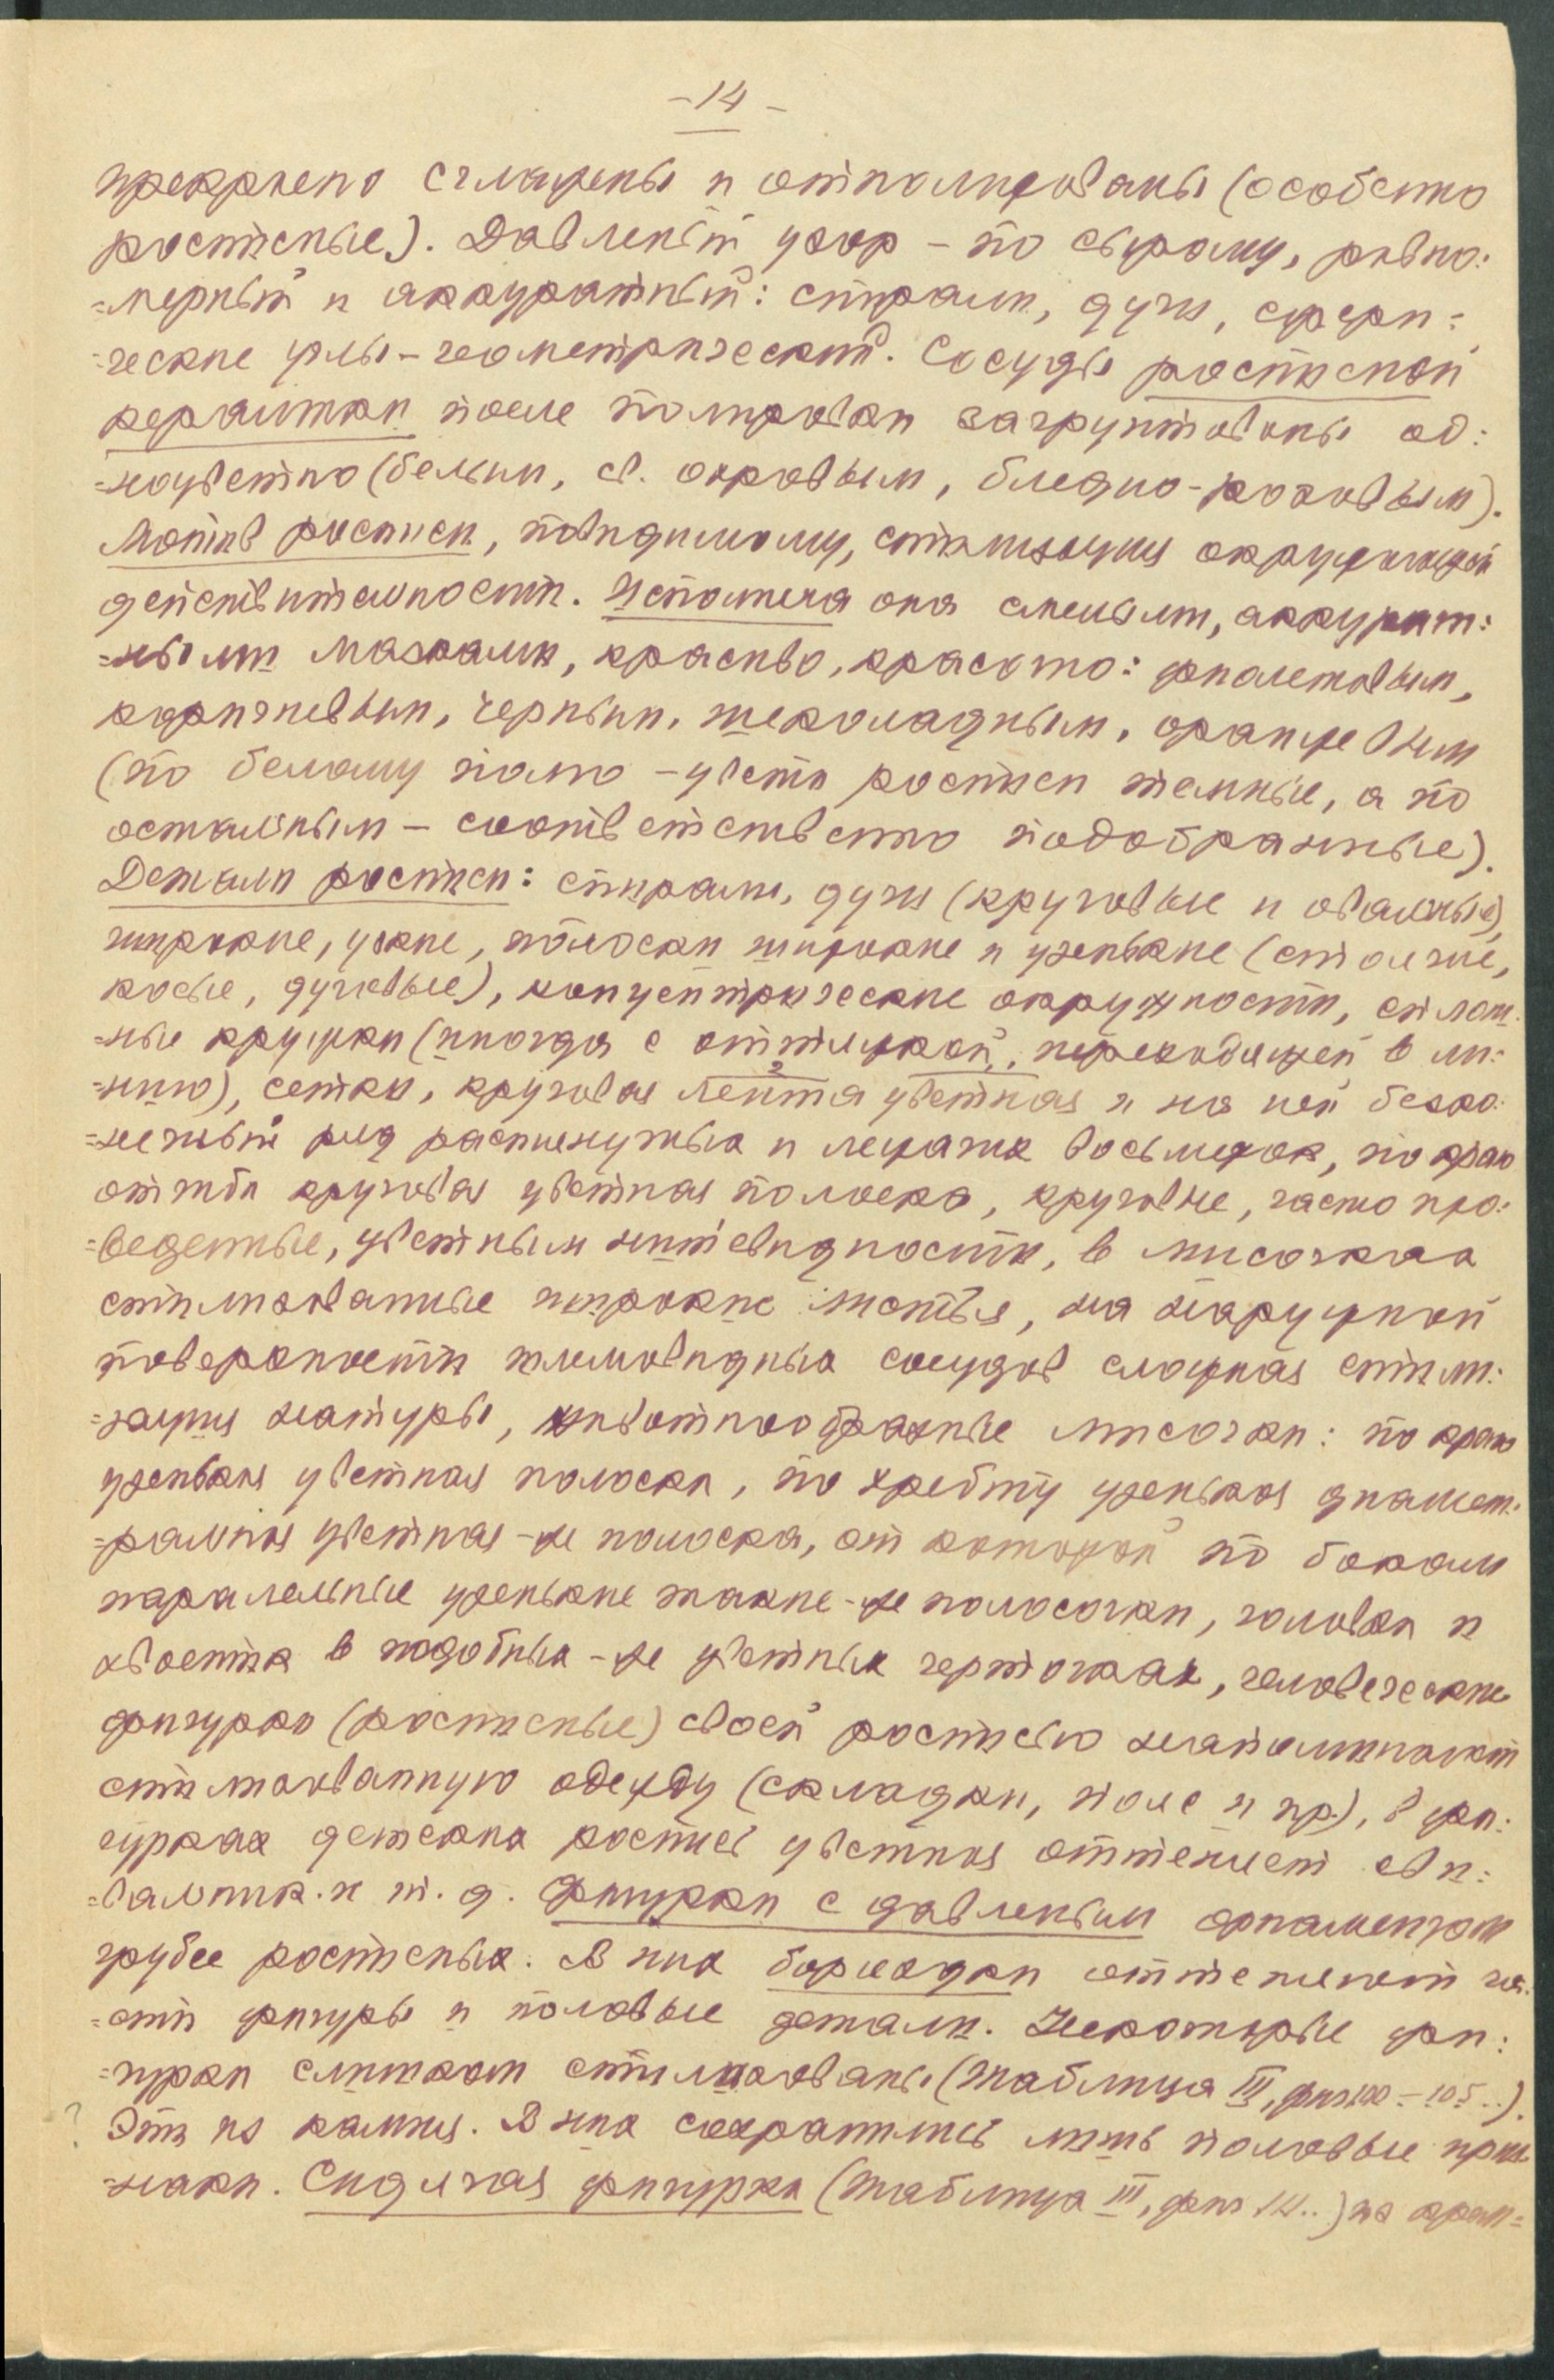 -14-
прекрасно сглажены и отполированы (особенно
росписные). Давленый узор - по сырому, равно:
=мерный и аккуратный: спирали, дуги, сфери=
=ческие углы - геометрический. Сосуды росписной
керамики после полировки загрунтованы од:
=ноцветно (белым, св. окровым, бледно-розовым).
Мотив росписи, повидимому, стилизация окружающей
действительности. Исполнена она смелыми, аккурат:
=ными мазками, красиво, красото: фиолетовым,
коричневым, черным, шеколадным, оранжевым
(по белому полю - цвета росписи темные, а по
остальным - соответственно подобранные).
Детали росписи: спирали, дуги (круговые и овальные),
широкие, узкие, полоски широкие и узенькие (стоячие,
косые, дуговые), концентрические окружности, сплош:
=ные кружки (иногда с оттяжкой, переходящей в ли:
=нию), сетки, круговая лента цветная и на ней беско:
=нечный ряд растянутых и лежачих восьмерок, по краю
отгиба круговая цветная полоска, круговые, часто про:
=веденные, цветным нитевидности, в мисочках
стилизованные широкие листья, на наружной
поверхности шлемовидных сосудов сложная стили:
=зация натуры, животнообразные мисочки: по краю
узенькая цветная полоска, по хребту узенькая диамет:
=ральная цветная-же полоска, от которой по бокам
паралельные узенькие такие-же полосочки, головки и
хвостик в подобных-же цветных черточках, человеческие
фигурки (росписные) своей росписью напоминают
стилизованную одежду (складки, пояс и пр.), в фи:
гурках детских роспись цветная оттеняет сви=
=вальник и т. д. Фигурки с давленным орнаментом
грубее росписных. В них бороздки оттеняют ча:
=сти фигуры и половые детали. Некоторые фи:
=гурки слишком стилизованы (таблица III, фиг. 100-105..).
? Эти из камня. В них сохранились лишь половые приз
=наки. Сидячая фигурка (таблица III, фиг 14..) из крем=